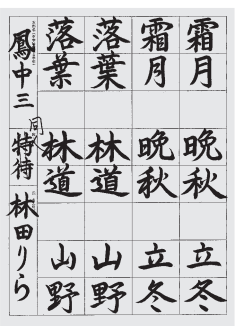 霜月 晩秋 立冬
霜月 晩秋 立冬
落葉 林道 山野
落葉 林道 山野
鳳中三 同人 特待 林田りら